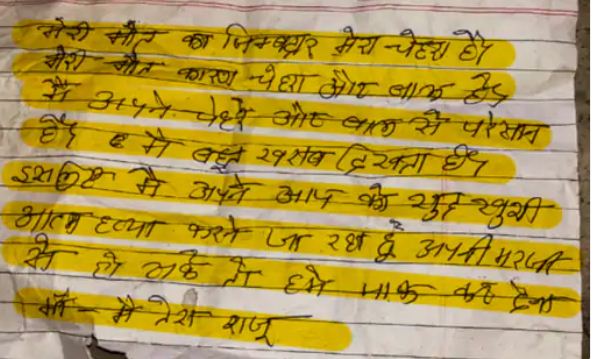 मेरी मौत का जिम्बदार मेरा चेहरा है।
मेरी मौत कारण चेहरा और बाल है।
मै अपने चेहरे और बाल से परेसान
है। मै बहुत खराब दिखता है।
इसलिए मै अपने आप को खुद खुशी
आत्म हत्या करने जा रहा हूँ अपनी मरजी
से हो सके तो हमे माफ कर देना
माँ - मै तेरा राजू